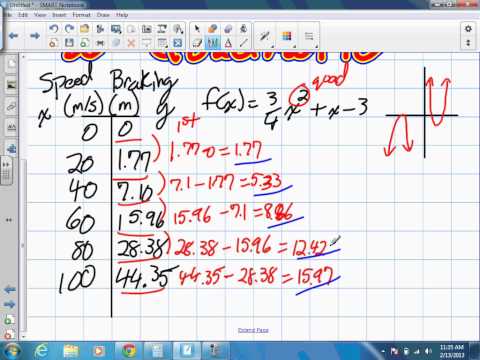 Untitled * - SMART Notebook
File Edit View Insert Format Tools Draw Help
Speed Braking
x (m/s) (m) y f(x) = 3/4 x² + x - 3 quad
0 0 1st
20 1.77 1.77-0=1.77
40 7.10 7.1-1.77=5.33
60 15.96 15.96-7.1=8.86
80 28.38 28.38-15.96=12.42
100 44.35 44.35-28.38=15.97
Extend Page
11:05 AM
2/13/2013